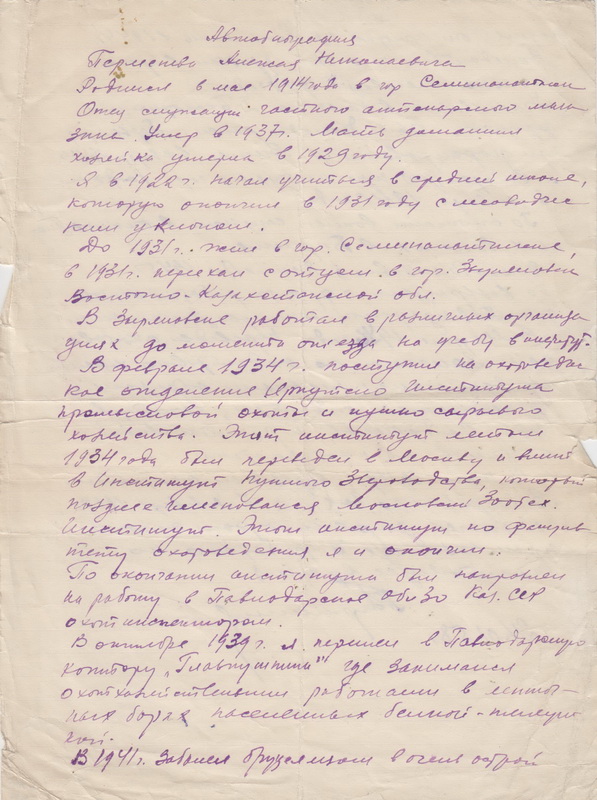 Автобиография
Алексея Николаевича
Родился в мае 1914 года в гор Семипалатинске
Отец служащий частного аптекарского мага
зина. Умер в 1937 г. Мать домашняя
хозяйка умерла в 1929 году.
Я в 1922 г. начал учиться в средней школе,
которую окончил в 1931 году с лесоводчес
ким уклоном.
До 1931 г. жил в гор. Семипалатинске,
в 1931 г. переехал с отцом в гор. Зыряновск
Восточно-Казахстанской обл.
В Зыряновске работал в различных организа
циях до момента отъезда на учебу в институт.
В феврале 1934 г. поступил на охотоведчес
кое отделение Иркутского Института
промысловой охоты и пушно сырьевого
хозяйства. Этот институт летом
1934 года был переведен в Москву и влит
в Институт Пушного Звероводства, который
позднее именовался Московский Зоотех.
Институт. Этот институт по факуль
тету охотоведения я и окончил.
По окончании института был направлен
на работу в Павлодарское облЗО Каз. ССР
охотинспектором.
В октябре 1939 г. я перешел в Павлодарскую
контору „Главпушнины" где занимался
охотхозяйственными работами в ленточ-
ных борах населенных белкой-телеут
кой.
В 1941 г. заболел бруцеллезом в очень острой